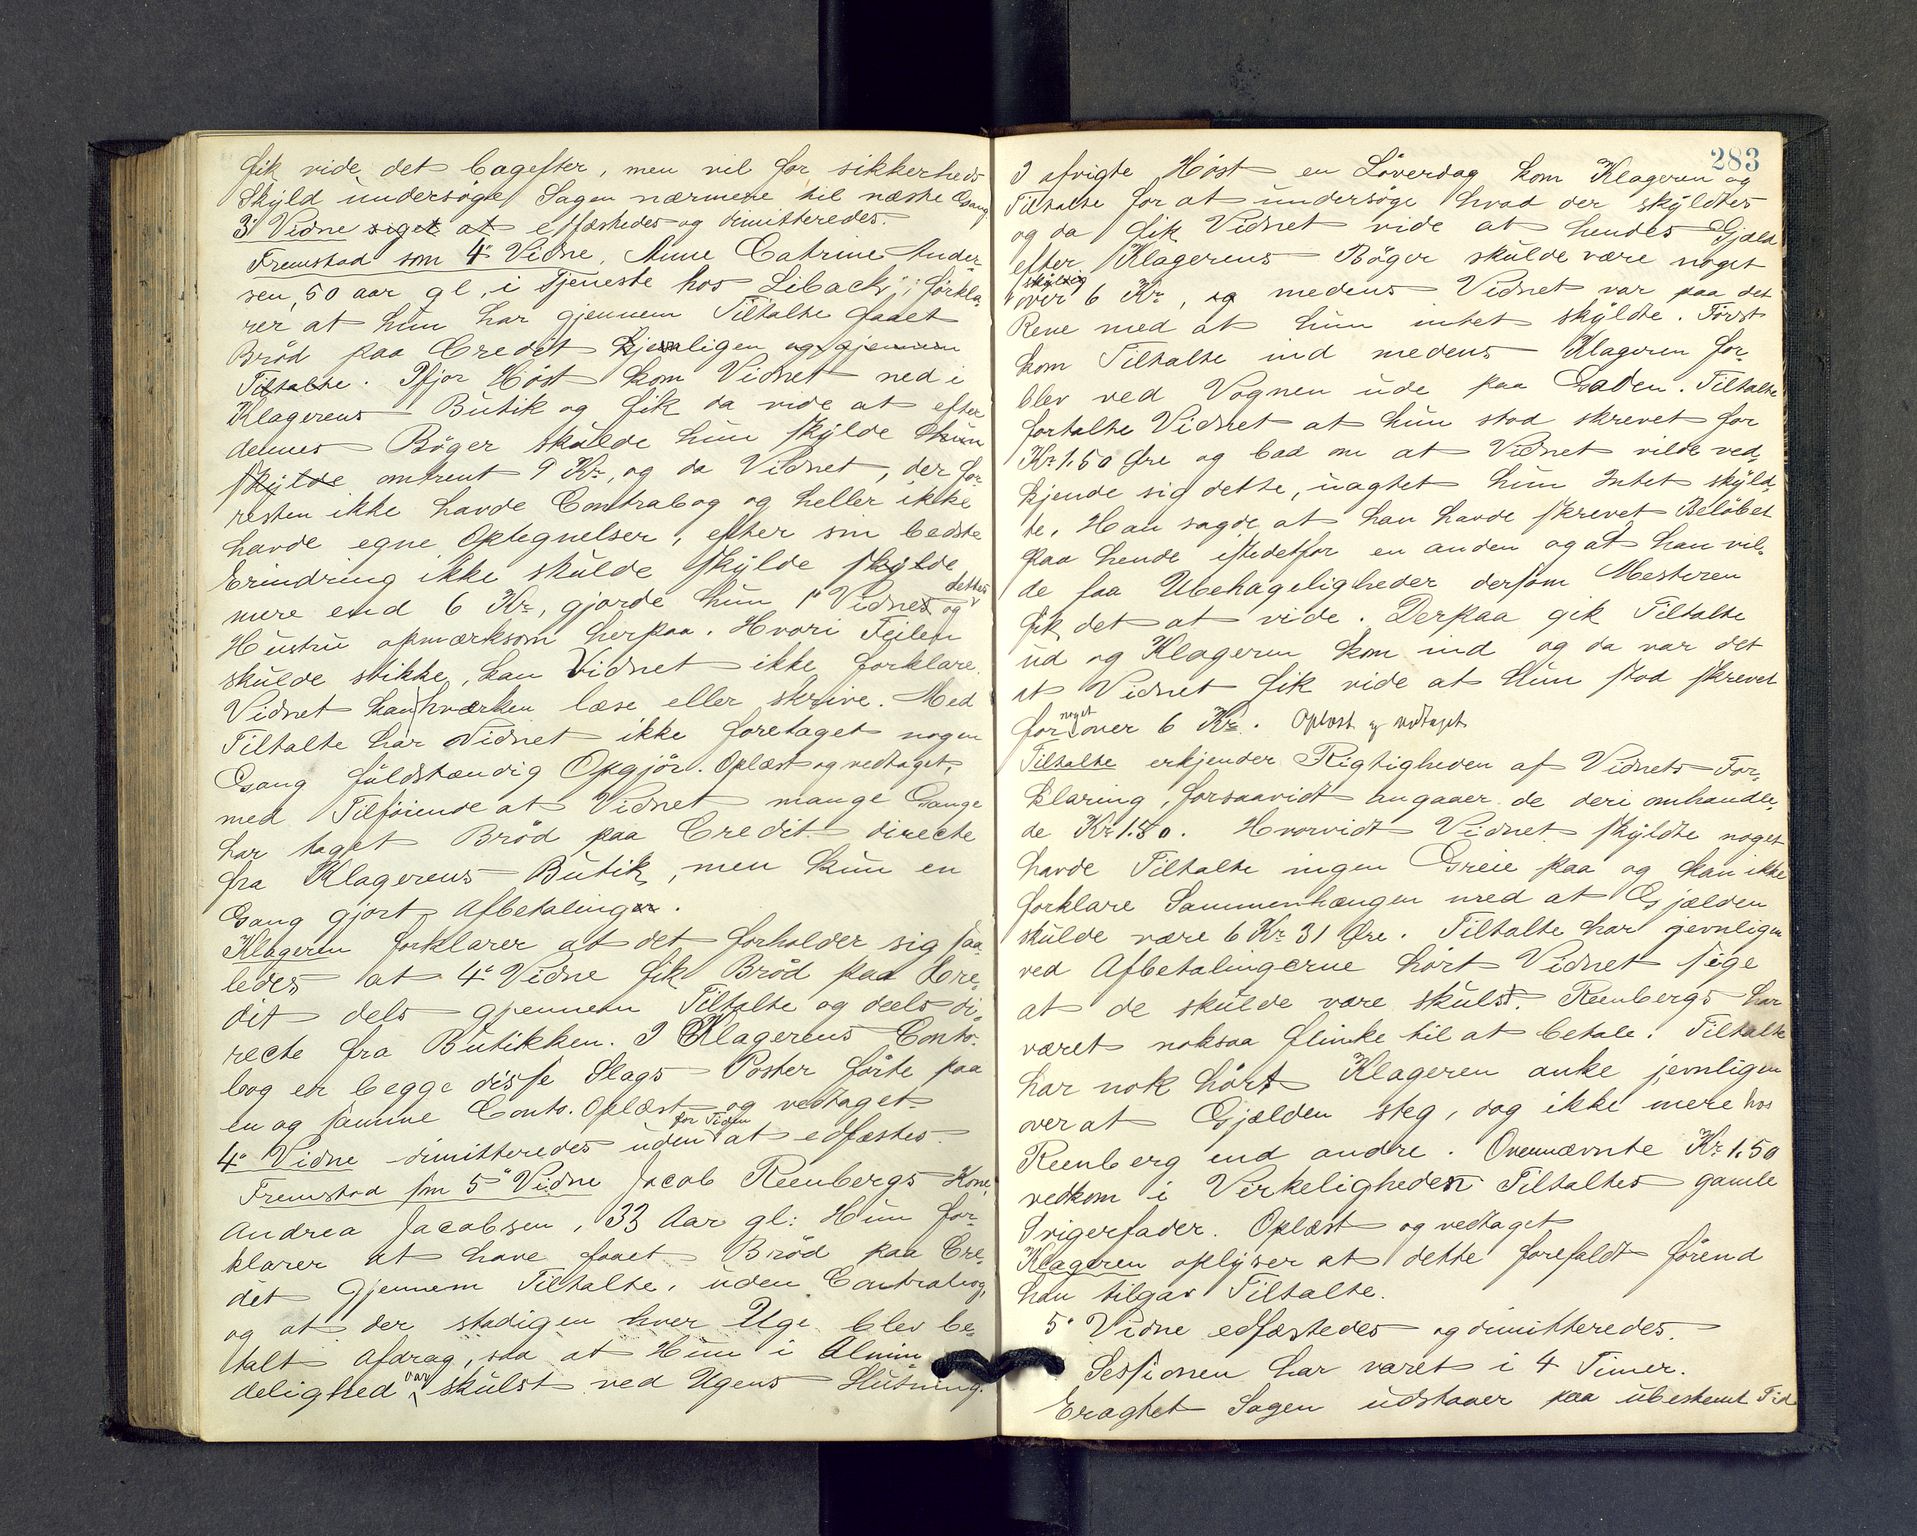 fik vide det bagefter, men vil for sikkerheds
Skyld undersøge Sagen nærmere til næste Gang
3' Vidne siger at edfæstedes og dimitteredes.
Fremstod som 4' Vidne, Anne Catrine Ander-
sen, 50 aar gl, i Tjeneste hos Libach; forkla-
rer at hun har gjennem Tiltalte faaet
Brød paa Credit jevnligen og gjennem
Tiltalte. Ifjor Høst kom Vidnet ned i
Klagerens Butik og fik da vide at efter
dennes Bøger skulde hun skylde hun
skylde omtrent 9 Kr, og da Vidnet, der for-
resten ikke havde Contrabog og heller ikke
havde egne Optegnelser, efter sin bedste
Erindring ikke skulde skylde skylde
mere end 6 Kr, gjorde hun 1' Vidnet og dettes
Hustru opmærksom herpaa. Hvori Feilen
skulde stikke, kan Vidnet ikke forklare.
Vidnet kan hværken læse eller skrive. Med
Tiltalte har Vidnet ikke foretaget nogen
Gang fuldstændig Opgjør. Oplæst og vedtaget,
med Tilføiende at Vidnet mange Gange
har taget Brød paa Credit directe
fra Klagerens Butik, men kun en
Gang gjort Afbetalinger.
Klageren forklarer at det forholder sig saa-
ledes at 4' Vidne fik Brød paa Cre-
dit dels gjennem Tiltalte og deels di-
recte fra Butikken. I Klagerens Conto-
bog er begge disse Slags Poster førte paa
en og samme Conto. Oplæst og vedtaget.
4' Vidne dimitteredes uden for Tiden at edfæstes.
Fremstod som 5' Vidne Jacob Reenbergs Kone,
Andrea Jacobsen, 33 Aar gl: Hun for-
klarer at have faaet Brød paa Cre-
dit gjennem Tiltalte, uden Contrabog,
og at der stadigen hver Uge blev be-
talt Afdrag, saa at Hun i Almin-
delighed var skulst ved Ugens Slutning.
283
I afvigte Høst en Løverdag kom Klageren og
Tiltalte for at undersøge hvad der skyldtes
og da fik Vidnet vide at hendes Gjæld
efter Klagerens Bøger skulde være noget
over 6 Kr, og medens Vidnet var paa det
Rene med at hun intet skyldte. Først
kom Tiltalte ind medens Klageren for-
blev ved Vognen ude paa Gaden. Tiltalte
fortalte Vidnet at hun stod skrevet for
Kr 1.50 Øre og bad om at Vidnet vilde ved-
kjende sig dette, uagtet hun Intet skyld-
te. Han sagde at han havde skrevet Beløbet
paa hende istedetfor en anden og at han vil-
de faa Ubehageligheder dersom Mesteren
fik det at vide. Derpaa gik Tiltalte
ud og Klageren kom ind og da var det
at Vidnet fik vide at hun stod skrevet
for noget over 6 Kr. Oplæst og vedtaget
Tiltalte erkjender Rigtigheden af Vidnets For-
klaring, forsaavidt angaaer de deri omhandle-
de Kr 1.50. Hvorvidt Vidnet skyldte noget
havde Tiltalte ingen Greie paa og kan ikke
forklare Sammenhængen med at Gjælden
skulde være 6 Kr 31 Øre. Tiltalte har jevnligen
ved Afbetalingerne hørt Vidnet sige
at de skulde være skulst. Reenbergs har
været noksaa flinke til at betale. Tiltalte
har nok hørt Klageren anke jevnligen
over at Gjælden steg, dog ikke mere hos
Reenberg end andre. Ovennævnte Kr 1.50
vedkom i Virkeligheden Tiltaltes gamle
Svigerfader. Oplæst og vedtaget
Klageren oplyser at dette forefaldt førend
han tilgav Tiltalte.
5' Vidne edfæstedes og dimitteredes.
Sessionen har varet i 4 Timer.
Eragtet Sagen udstaaer paa ubestemt Tid